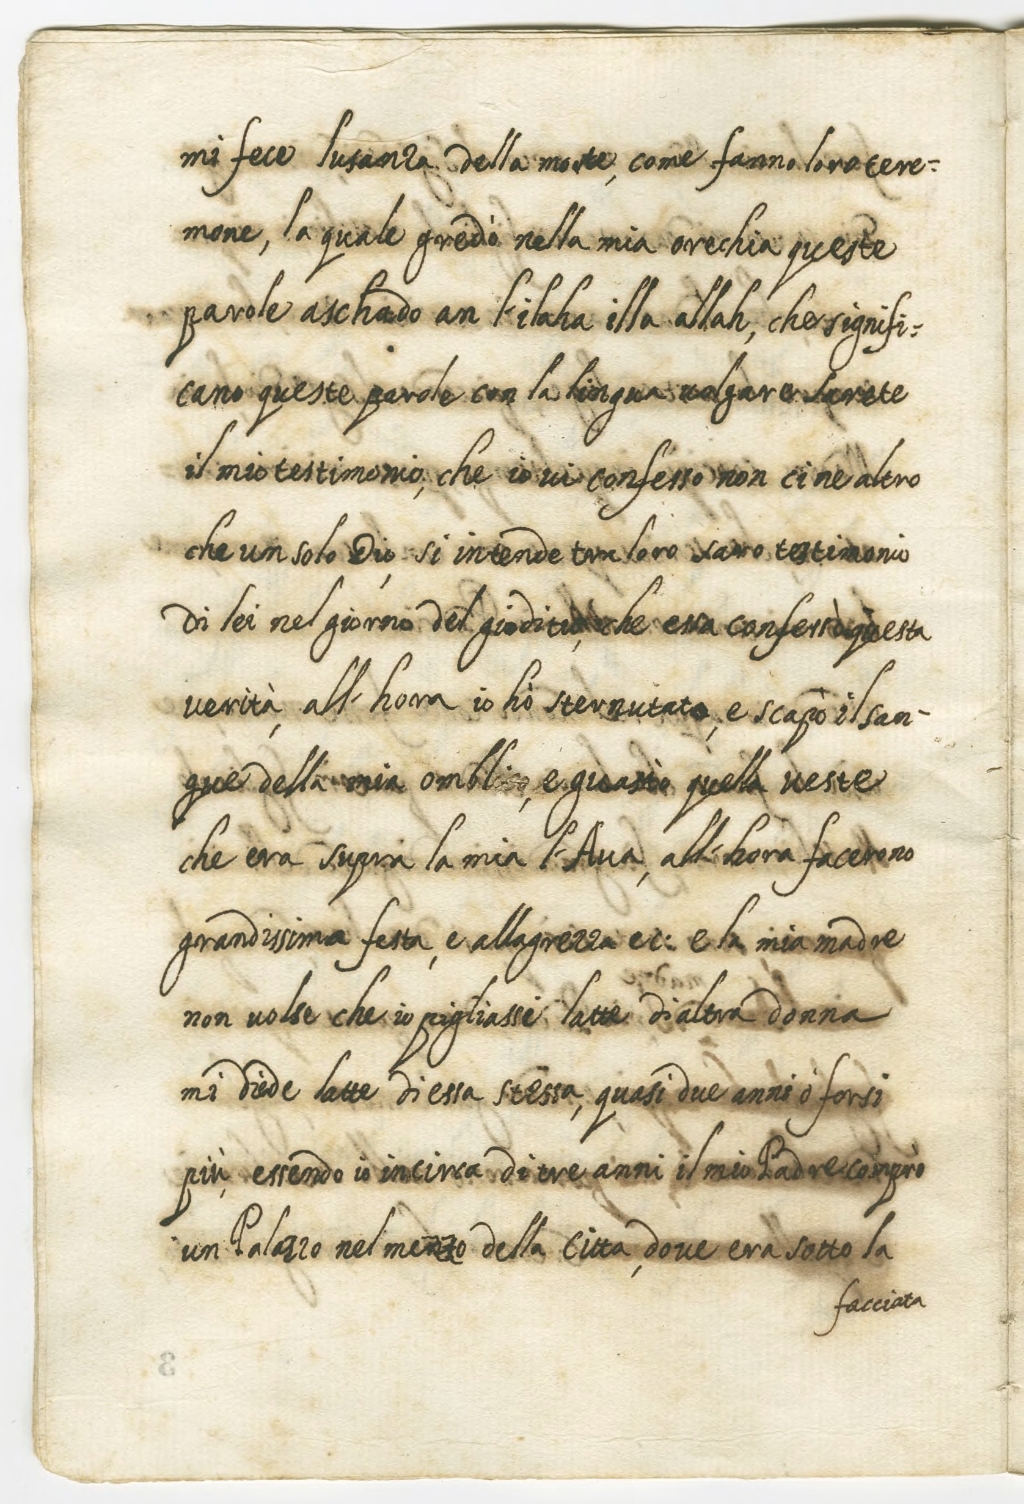 mi fece lusanza della morte, come fanno loro cere=
mone, la quale gredò nella mia orechia queste
parole aschado an l'ilaha illa allah, che signifi=
cano queste parole con la lingua uolgare sarete
il mio testimonio, che io ui confesso non ci ne altro
che un solo Dio, si intende tra loro saro testimonio
di lei nel giorno del giuditio, che essa confessò questa
uerità, all'hora io hò sternutato, e scapò il san-
gue della mia omblico, e guastò quella ueste
che era supra la mia l'Aua, all'hora facerono
grandissima festa, e allagrezza ec: e la mia madre
non uolse che io pigliassi latte di altra donna
mi diede latte di essa stessa, quasi due anni ò forsi
più, essendo io incirca di tre anni il mio Padre comprò
un Palazzo nel mezzo della Citta, doue era sotto la
facciata